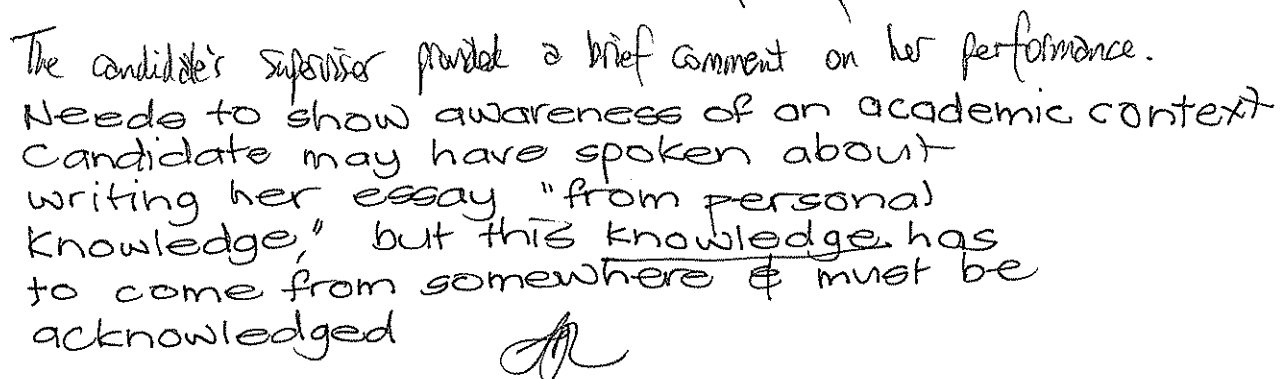 The candidate's supervisor provided a brief comment on her performance.
Needs to show awareness of an academic context
Candidate may have spoken about
writing her essay "from personal
knowledge," but this knowledge has
to come from somewhere & must be
acknowledged